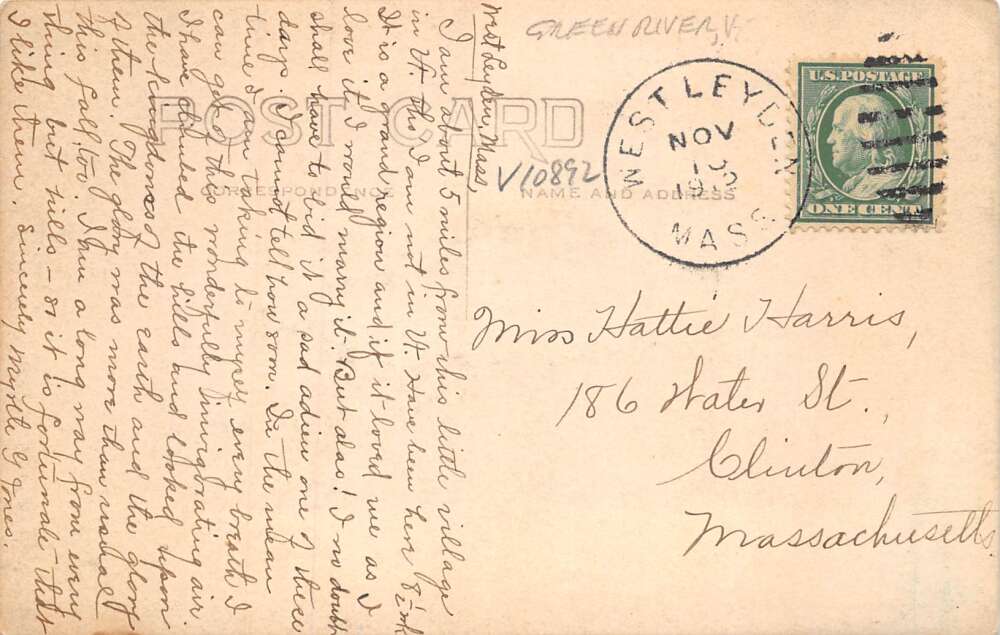 GREEN RIVER, V.
POST CARD
CORRESPONDENCE
NAME AND ADDRESS
V10892
WEST LEYDEN
NOV
MASS
U.S. POSTAGE
ONE CENT
Miss Hattie Harris,
186 Water St.,
Clinton,
Massachusetts
West Leyden, Mass,
I am about 5 miles from this little village
in Vt. tho I am not in Vt. Have been here 8½ wk
It is a grand region and if it loved me as I
love it I would marry it. But alas! I no doubt
shall have to bid it a sad adieu one of these
days. I cannot tell how soon. In the mean
time I am taking to myself every breath I
can get of this wonderfully invigorating air.
I have climbed the hills and looked upon
the kingdoms of the earth and the glory
of them. The glory was more than usual
this fall too. I am a long way from every
thing but hills - so it is fortunate that
I like them. Sincerely Myrtle G Jones.